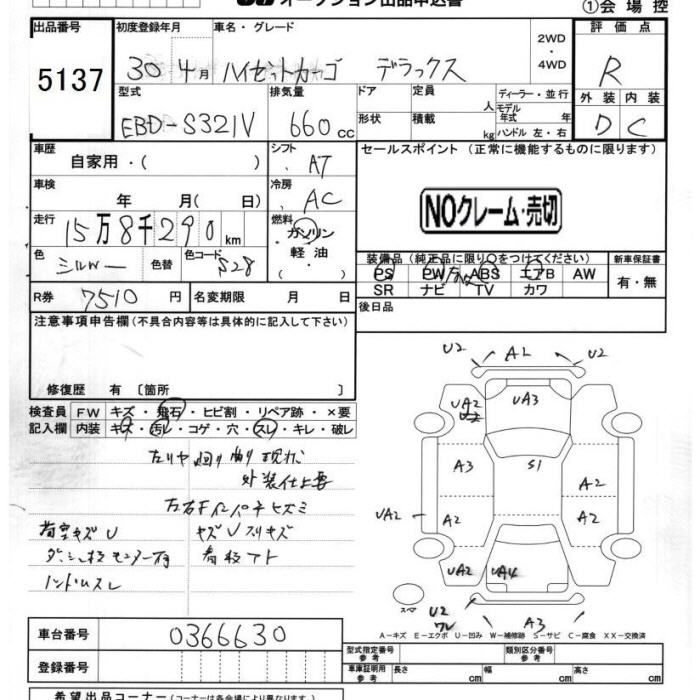 オークション出品申込書
①会場控
出品番号 5137
初度登録年月 30 4月
車名・グレード ハイゼットカーゴ デラックス
2WD・4WD
評価点 R
外装 D 内装 C
型式 EBD-S321V
排気量 660cc
ドア 定員 人
形状 積載 kg
ディーラー・並行
モデル年式 年
ハンドル 左・右
車歴 自家用・( )
シフト AT
車検 年 月( 日)
冷房 AC
走行 15万8千290km
燃料 ガソリン 軽油 ・( )
色 シルバー 色替 色コード S28
R券 7510円 名変期限 月 日
セールスポイント (正常に機能するものに限ります)
NOクレーム・売切
装備品(純正品に限り○をつけてください)
PS PW ABS エアB AW
SR ナビ TV カワ
新車保証書
有・無
後日品
注意事項申告欄(不具合内容等は具体的に記入して下さい)
修復歴 有〔箇所 〕
検査員記入欄
FW キズ・飛石・ヒビ割・リペア跡・×要
内装 キズ・汚レ・コゲ・穴・スレ・キレ・破レ
外装仕上要
左右Fインパネキズミ
荷室キズU キズUスリキズ
ハンドルスレ
U2 A2 U2
UA2 UA3
A3 S1 A2
UA2 A2 A2
UA2 UA4
スペア
U2 ワレ A3
A-キズ E-エクボ U-凹み W-補修跡 S-サビ C-腐食 XX-交換済
車台番号 0366630
登録番号
型式指定番号 参考 類別区分番号 参考
車庫証明用 参考 長さ cm 幅 cm 高さ cm
希望出品コーナー(コーナーは各会場により異なります)